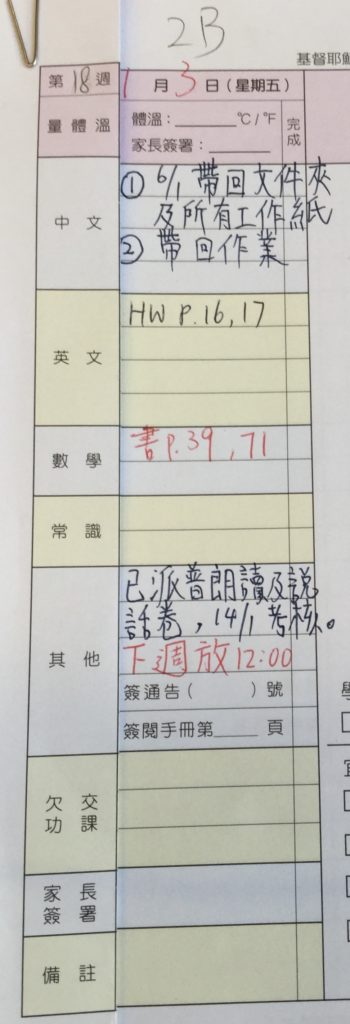 2B
基督耶穌
第18週 1月3日(星期五)
量體溫 體溫：______℃/℉ 完成
家長簽署：______
中文 ① 6/1 帶回文件夾
及所有工作紙
② 帶回作業
英文 HW P.16,17
數學 書P.39,71
常識
其他 已派普朗讀及說
話卷，14/1考核。
下週放12:00
簽通告( )號
簽閱手冊第____頁
欠交功課
家長簽署
備註